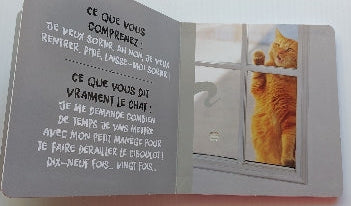 CE QUE VOUS
COMPRENEZ :
JE VEUX SORTIR. AH NON, JE VEUX
RENTRER. PITIÉ, LAISSE-MOI SORTIR !
CE QUE VOUS DIT
VRAIMENT LE CHAT :
JE ME DEMANDE COMBIEN
DE TEMPS JE VAIS METTRE
AVEC MON PETIT MANÈGE POUR
TE FAIRE DÉRAILLER LE CIBOULOT !
DIX-NEUF FOIS... VINGT FOIS...